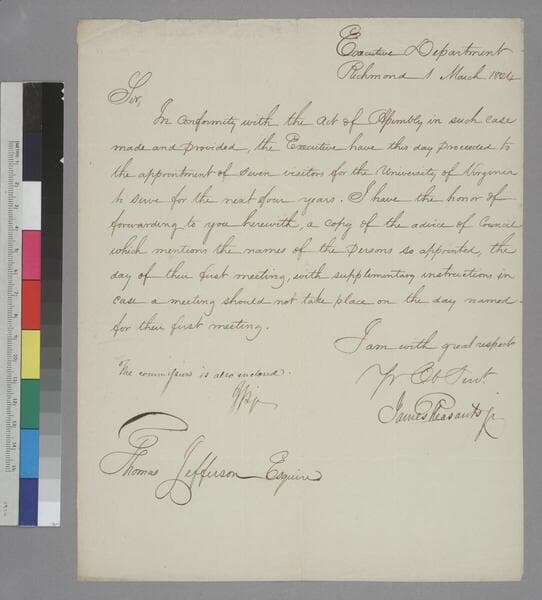 Executive Department
Richmond 1 March 1824
Sir,
In conformity with the act of Assembly in such case
made and provided, the Executive have this day proceeded to
the appointment of seven visitors for the University of Virginia
to serve for the next four years. I have the honor of
forwarding to you herewith, a copy of the advice of Council
which mentions the names of the persons so appointed, the
day of their first meeting, with supplementary instructions in
case a meeting should not take place on the day named
for their first meeting.
I am with great respect
Yr Ob Servt.
James Pleasants jr
The commissions is also enclosed.
Thomas Jefferson Esquire